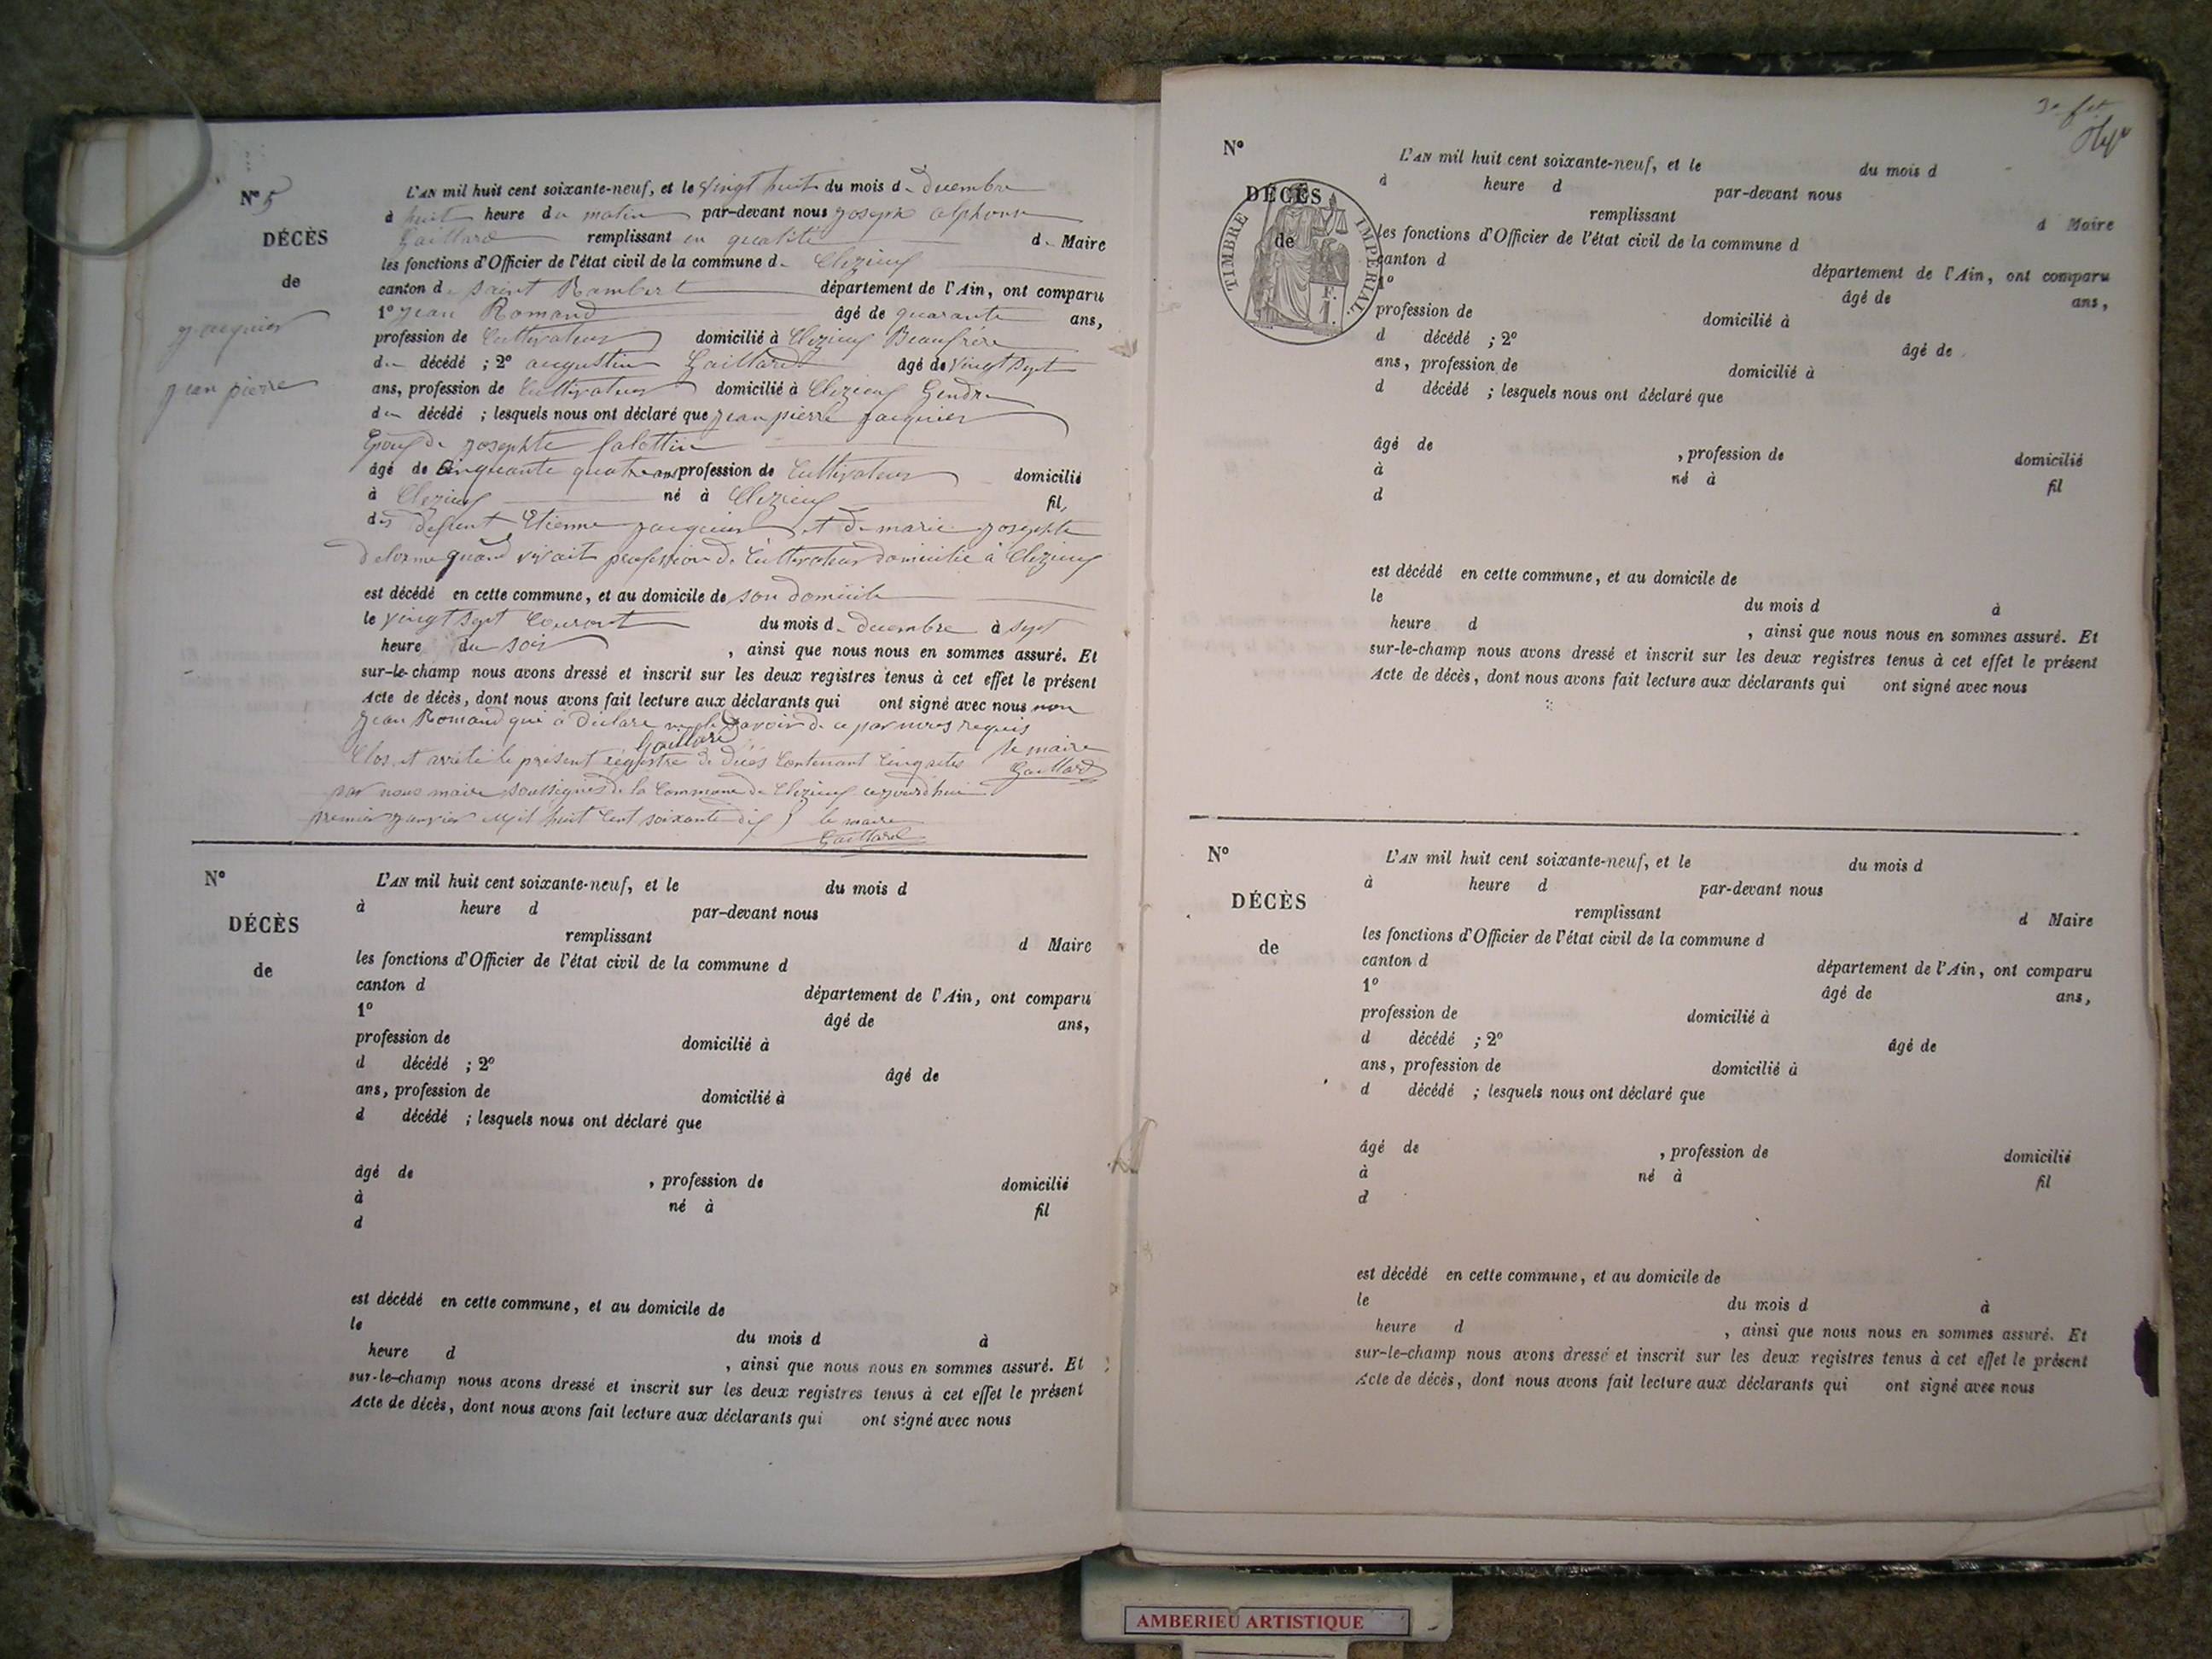 N° 5
DÉCÈS
de
jacquier
jean pierre
L'AN mil huit cent soixante-neuf, et le vingt huit du mois de decembre
à huit heure du matin par-devant nous joseph alphonse
Gaillard remplissant en qualité de Maire
les fonctions d'Officier de l'état civil de la commune de Clezieu
canton de saint Rambert département de l'Ain, ont comparu
1° jean Romand âgé de quarante ans,
profession de Cultivateur domicilié à Clezieu Beaufrère
du décédé ; 2° augustin Gaillard âgé de vingt sept
ans, profession de Cultivateur domicilié à Clezieu Gendre
du décédé ; lesquels nous ont déclaré que jean pierre jacquier
Epoux de josephte
âgé de Cinquante quatre ans profession de Cultivateur domicilié
à Clezieu né à Clezieu fil
des defunt Etienne jacquier et de marie josephte
delorme quand vivait profession de Cultivateur domicilié à Clezieu
est décédé en cette commune, et au domicile de son domicile
le vingt sept Courant du mois de decembre à sept
heure du soir , ainsi que nous nous en sommes assuré. Et
sur-le-champ nous avons dressé et inscrit sur les deux registres tenus à cet effet le présent
Acte de décès, dont nous avons fait lecture aux déclarants qui ont signé avec nous non
jean Romand qui a déclaré ne le savoir de ce par nous requis
Gaillard
le maire
Gaillard
Clos et arrêté le présent régistre de décès Contenant Cinq actes
par nous maire soussigné de la Commune de Clezieu aujourdhui
premier janvier mil huit Cent soixante dix le maire
Gaillard
N°
DÉCÈS
de
L'AN mil huit cent soixante-neuf, et le du mois d
à heure d par-devant nous
remplissant d Maire
les fonctions d'Officier de l'état civil de la commune d
canton d département de l'Ain, ont comparu
1° âgé de ans,
profession de domicilié à
d décédé ; 2° âgé de
ans, profession de domicilié à
d décédé ; lesquels nous ont déclaré que
âgé de , profession de domicilié
à né à fil
d
est décédé en cette commune, et au domicile de
le du mois d à
heure d , ainsi que nous nous en sommes assuré. Et
sur-le-champ nous avons dressé et inscrit sur les deux registres tenus à cet effet le présent
Acte de décès, dont nous avons fait lecture aux déclarants qui ont signé avec nous
N°
DÉCÈS
de
TIMBRE IMPÉRIAL
1 F.
L'AN mil huit cent soixante-neuf, et le du mois d
à heure d par-devant nous
remplissant d Maire
les fonctions d'Officier de l'état civil de la commune d
canton d département de l'Ain, ont comparu
1° âgé de ans,
profession de domicilié à
d décédé ; 2° âgé de
ans, profession de domicilié à
d décédé ; lesquels nous ont déclaré que
âgé de , profession de domicilié
à né à fil
d
est décédé en cette commune, et au domicile de
le du mois d à
heure d , ainsi que nous nous en sommes assuré. Et
sur-le-champ nous avons dressé et inscrit sur les deux registres tenus à cet effet le présent
Acte de décès, dont nous avons fait lecture aux déclarants qui ont signé avec nous
N°
DÉCÈS
de
L'AN mil huit cent soixante-neuf, et le du mois d
à heure d par-devant nous
remplissant d Maire
les fonctions d'Officier de l'état civil de la commune d
canton d département de l'Ain, ont comparu
1° âgé de ans,
profession de domicilié à
d décédé ; 2° âgé de
ans, profession de domicilié à
d décédé ; lesquels nous ont déclaré que
âgé de , profession de domicilié
à né à fil
d
est décédé en cette commune, et au domicile de
le du mois d à
heure d , ainsi que nous nous en sommes assuré. Et
sur-le-champ nous avons dressé et inscrit sur les deux registres tenus à cet effet le présent
Acte de décès, dont nous avons fait lecture aux déclarants qui ont signé avec nous
AMBERIEU ARTISTIQUE